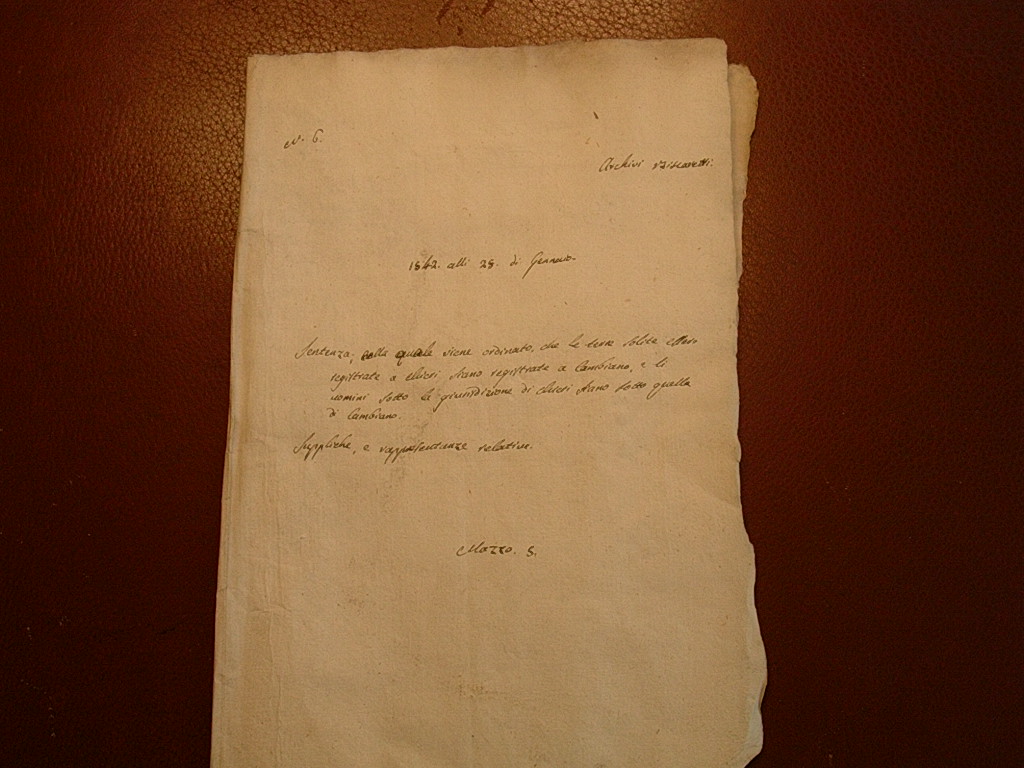 N. 6.
Archivi Biscaretti.
1542. alli 28. di Gennaro.
Sentenza, colla quale viene ordinato, che le terre solite esser
registrate a Chieri siano registrate a Cambiano, e li
uomini sotto la giurisdizione di Chieri siano sotto quella
di Cambiano.
Suppliche, e rappresentanze relative.
Mazzo. 5.